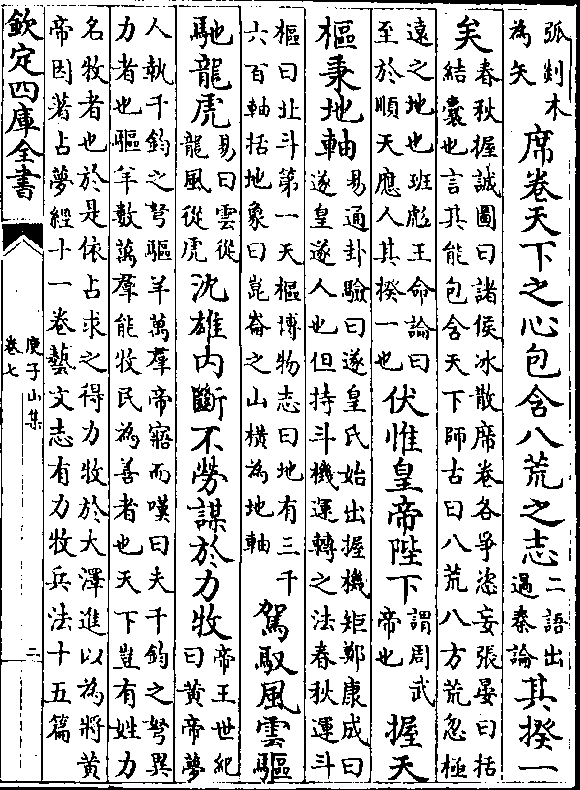 弧剡木為矢席卷天下之心包含八荒之志二語出過秦論其揆一
矣春秋握誠圖曰諸侯冰散席卷各爭恣妄張晏曰括結囊也言其能包含天下師古曰八荒八方荒忽極
遠之地也班彪王命論曰至於順天應人其揆一也伏惟皇帝陛下謂周武帝也握天
樞秉地軸易通卦驗曰遂皇氏始出握機矩鄭康成曰遂皇遂人也但持斗機運轉之法春秋運斗
樞曰北斗第一天樞博物志曰地有三千六百軸括地象曰崑崙之山橫為地軸駕馭風雲驅
馳龍虎易曰雲從龍風從虎沈雄内斷不勞謀於力牧帝王世紀曰黃帝夢
人執千鈞之弩驅羊萬羣帝寤而嘆曰夫千鈞之弩異力者也驅羊數萬羣能牧民為善者也天下豈有姓力
名牧者也於是依占求之得力牧於大澤進以為將黃帝因著占夢經十一卷藝文志有力牧兵法十五篇
欽定四庫全書
庾子山集
卷七
二